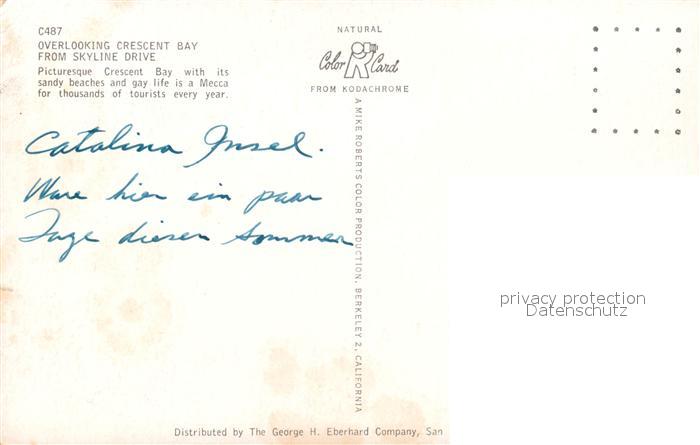 C487
OVERLOOKING CRESCENT BAY
FROM SKYLINE DRIVE
Picturesque Crescent Bay with its
sandy beaches and gay life is a Mecca
for thousands of tourists every year.
NATURAL
Color Card
FROM KODACHROME
Catalina Insel.
Ware hier ein paar
Tage diesen Sommer
A MIKE ROBERTS COLOR PRODUCTION, BERKELEY 2, CALIFORNIA
privacy protection
Datenschutz
Distributed by The George H. Eberhard Company, San